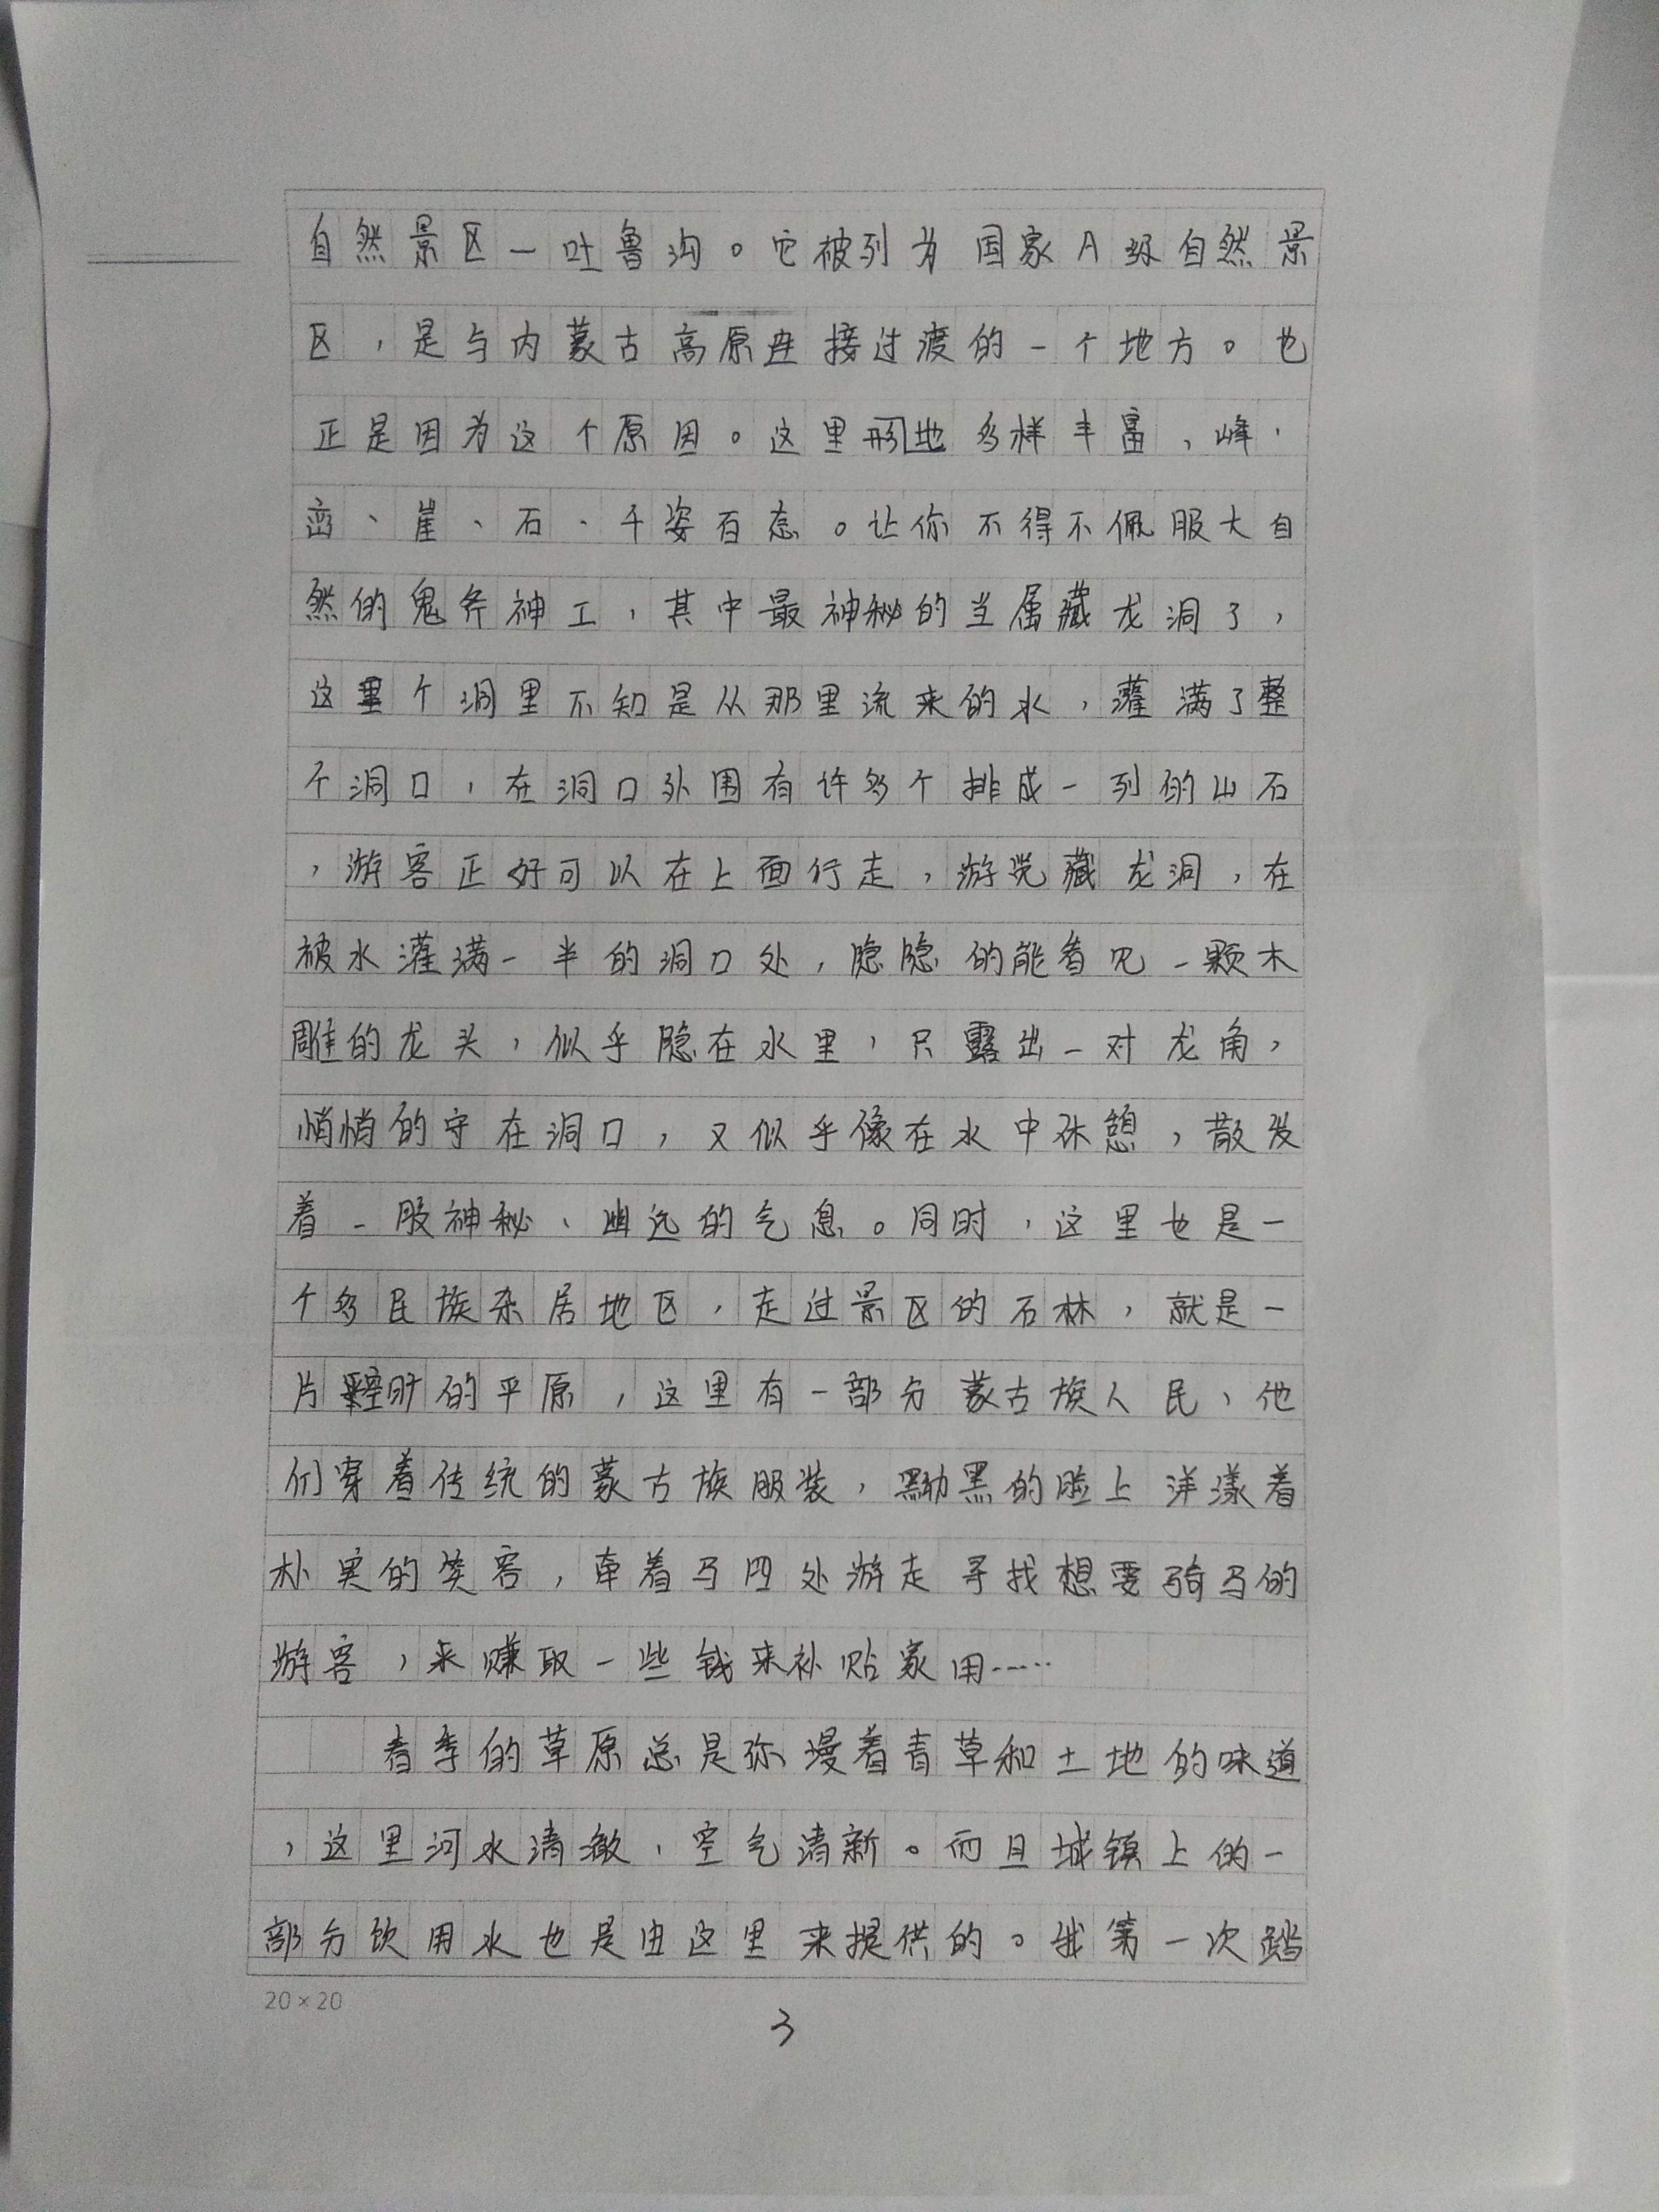 自然景区一吐鲁沟。它被列为国家A级自然景
区，是与内蒙古高原连接过渡的一个地方。也
正是因为这个原因。这里形地多样丰富，峰、
峦、崖、石、千姿百态。让你不得不佩服大自
然的鬼斧神工，其中最神秘的当属藏龙洞了，
这里个洞里不知是从那里流来的水，灌满了整
个洞口，在洞口外围有许多个排成一列的山石
，游客正好可以在上面行走，游览藏龙洞，在
被水灌满一半的洞口处，隐隐的能看见一颗木
雕的龙头，似乎隐在水里，只露出一对龙角，
悄悄的守在洞口，又似乎像在水中休憩，散发
着一股神秘、幽远的气息。同时，这里也是一
个多民族杂居地区，走过景区的石林，就是一
片空旷的平原，这里有一部分蒙古族人民，他
们穿着传统的蒙古族服装，黝黑的脸上洋漾着
朴实的笑容，牵着马四处游走寻找想要骑马的
游客，来赚取一些钱来补贴家用……
春季的草原总是弥漫着青草和土地的味道
，这里河水清澈，空气清新。而且城镇上的一
部分饮用水也是由这里来提供的。我第一次踏
20×20
3